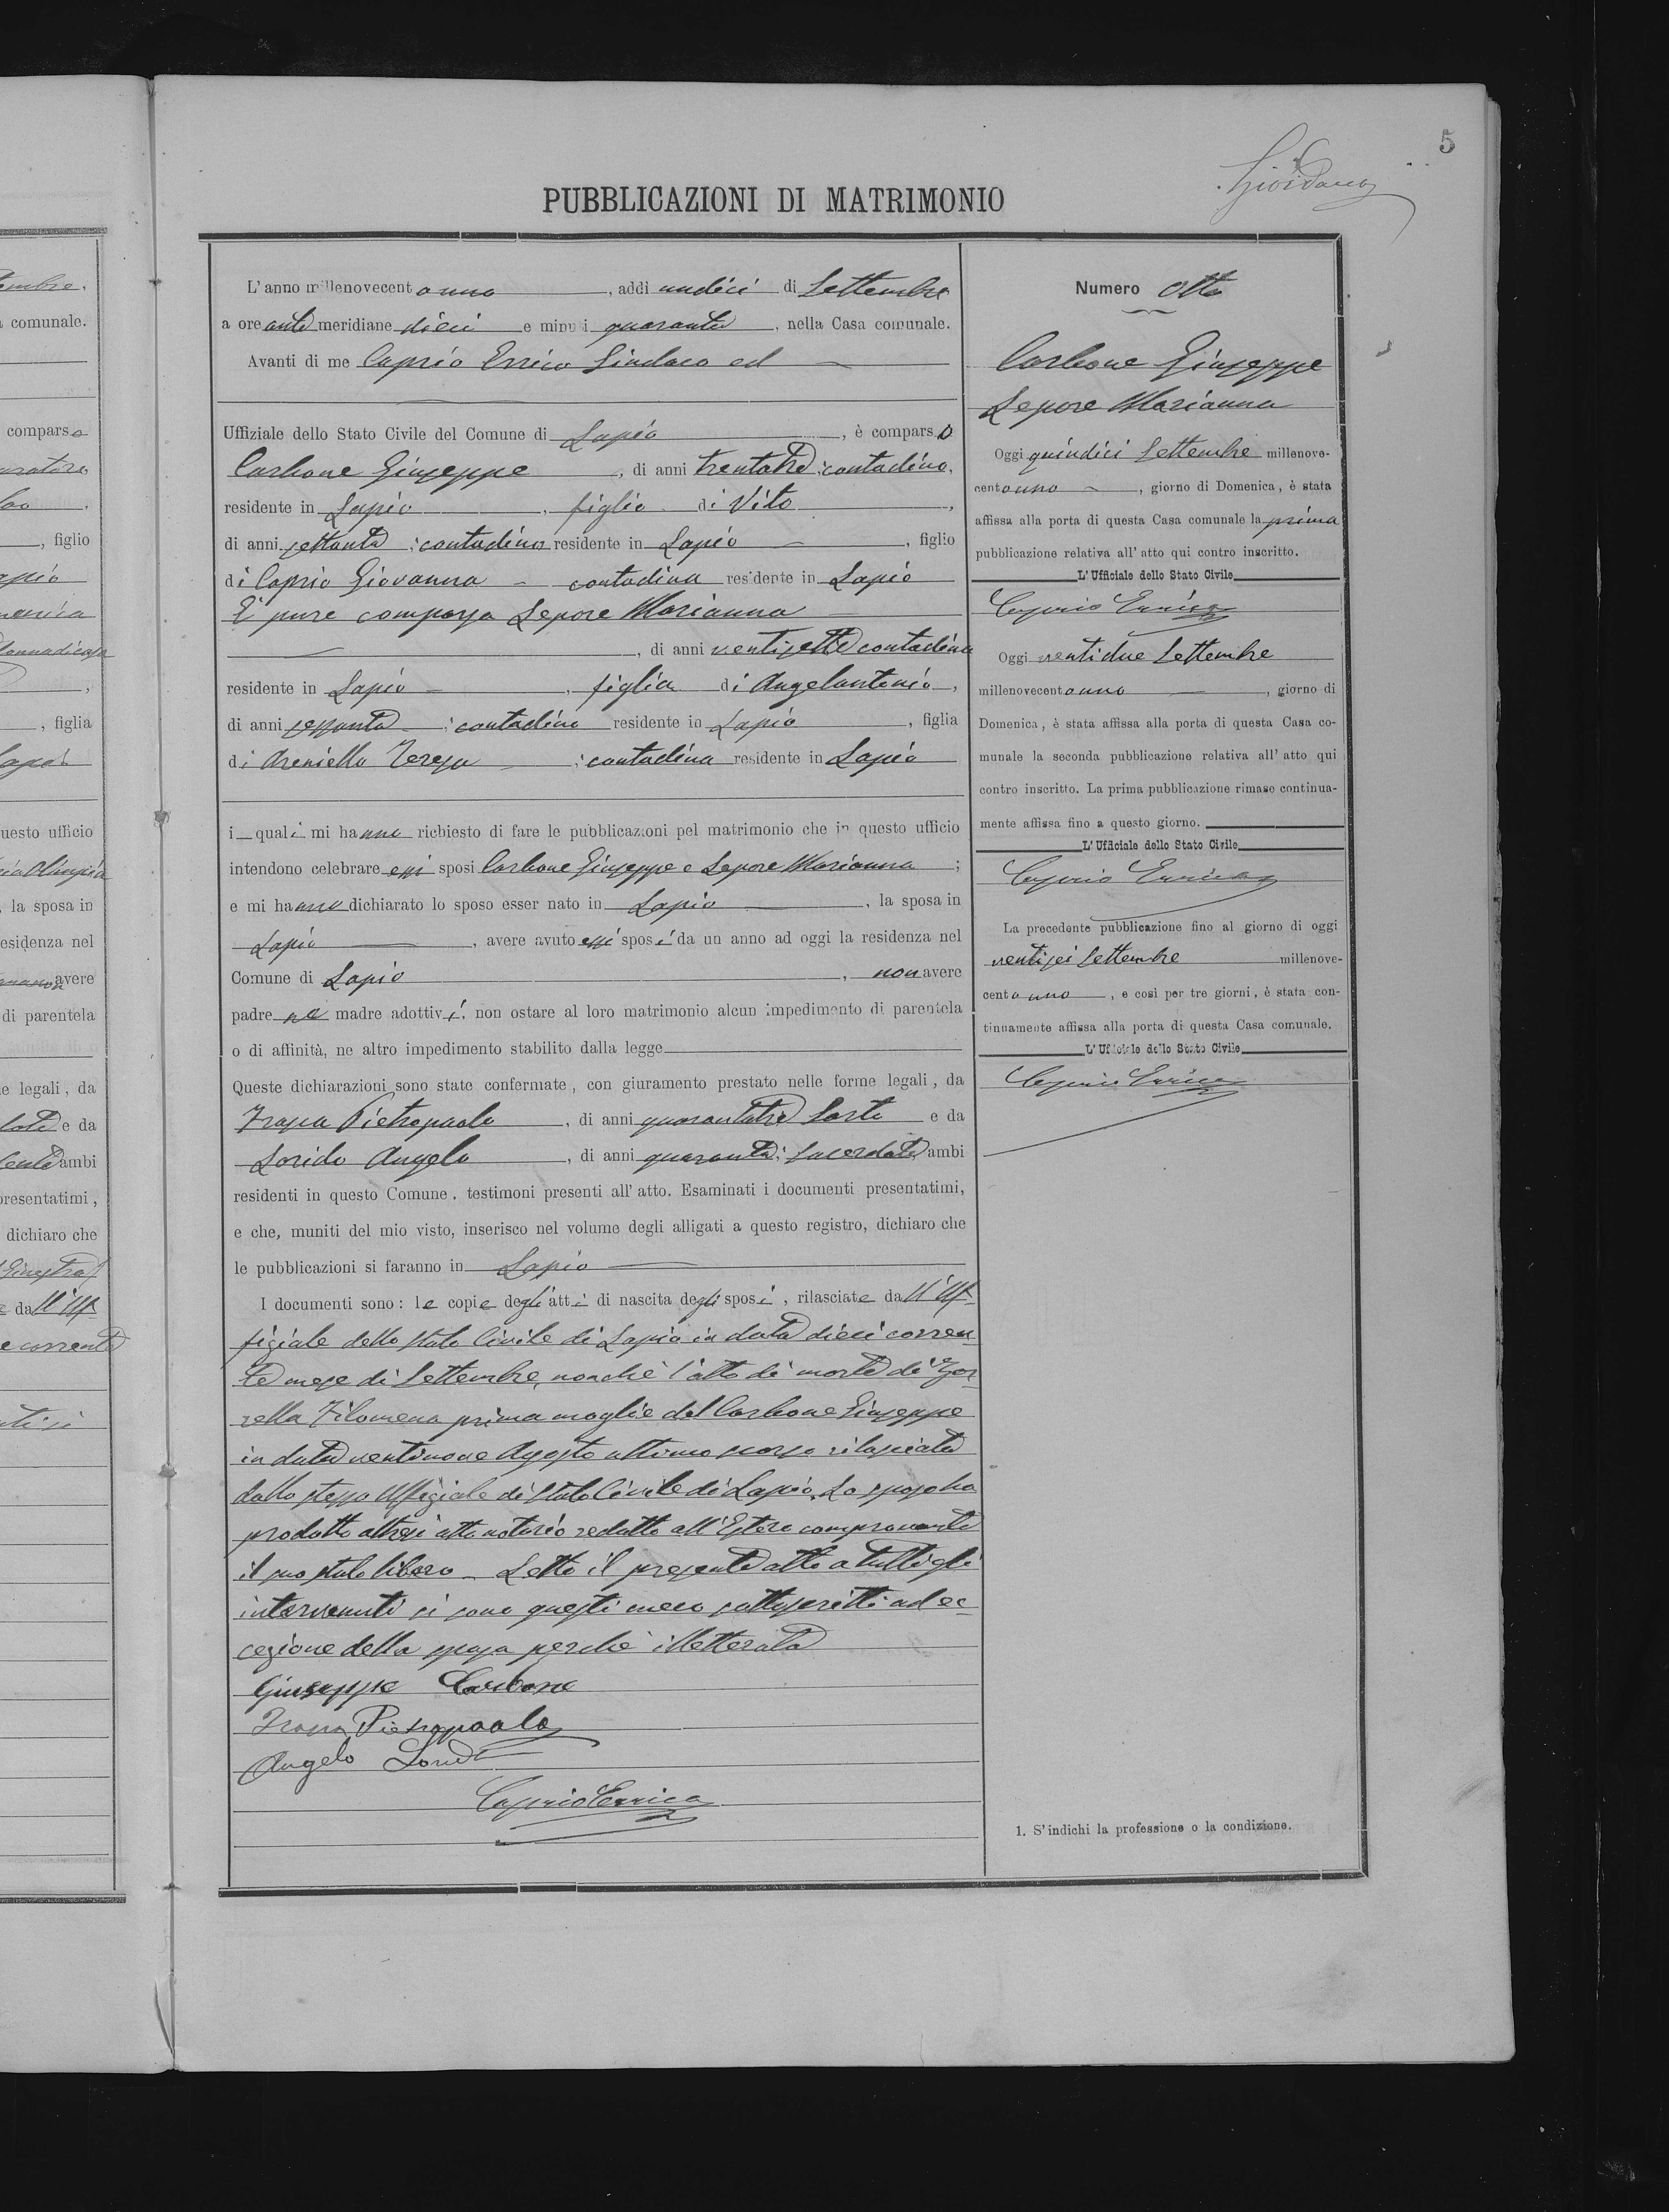 5
Giordano
PUBBLICAZIONI DI MATRIMONIO
L'anno millenovecentouno, addi undici di Settembre
a ore ante meridiane dieci e minuti quaranta, nella Casa comunale.
Avanti di me Caprio Errico Sindaco ed
Uffiziale dello Stato Civile del Comune di Lapio, è comparso
Carbone Giuseppe, di anni trentatre, contadino,
residente in Lapio, figlio di Vito,
di anni settanta, contadino residente in Lapio, figlio
di Caprio Giovanna contadina residente in Lapio
È pure comparsa Lepore Marianna
, di anni ventisette contadina
residente in Lapio, figlia di Angelantonio,
di anni sessanta, contadino residente in Lapio, figlia
di Areniello Teresa, contadina residente in Lapio
i quali mi hanno richiesto di fare le pubblicazioni pel matrimonio che in questo ufficio
intendono celebrare essi sposi Carbone Giuseppe e Lepore Marianna;
e mi hanno dichiarato lo sposo esser nato in Lapio, la sposa in
Lapio, avere avuto essi sposi da un anno ad oggi la residenza nel
Comune di Lapio, non avere
padre nè madre adottivi, non ostare al loro matrimonio alcun impedimento di parentela
o di affinità, ne altro impedimento stabilito dalla legge
Queste dichiarazioni sono state confermate, con giuramento prestato nelle forme legali, da
Trapa Pietropaolo, di anni quarantatre Sarto e da
Lorido Angelo, di anni quaranta, Sacerdote, ambi
residenti in questo Comune, testimoni presenti all'atto. Esaminati i documenti presentatimi,
e che, muniti del mio visto, inserisco nel volume degli alligati a questo registro, dichiaro che
le pubblicazioni si faranno in Lapio
I documenti sono: le copie degli atti di nascita degli sposi, rilasciate dall'Uf-
fiziale dello Stato Civile di Lapio in data dieci corren-
te mese di Settembre, nonchè l'atto di morte di
rella Filomena prima moglie del Carbone Giuseppe
in data ventinove Agosto ultimo scorso rilasciata
dallo stesso Uffiziale di Stato Civile di Lapio. Lo sposo ha
prodotto altresì atto notorio redatto all'Estero comprovante
il suo stato libero. Letto il presente atto a tutti gli
intervenuti si sono questi meco sottoscritti ad ec-
cezione della sposa perchè illetterata
Giuseppe Carbone
Trapa Pietropaolo
Angelo Lorid
Caprio Errico
Numero Otto
Carbone Giuseppe
Lepore Marianna
Oggi quindici Settembre millenove-
centouno, giorno di Domenica, è stata
affissa alla porta di questa Casa comunale la prima
pubblicazione relativa all'atto qui contro inscritto.
L'Ufficiale dello Stato Civile
Caprio Errico
Oggi ventidue Settembre
millenovecentouno, giorno di
Domenica, è stata affissa alla porta di questa Casa co-
munale la seconda pubblicazione relativa all'atto qui
contro inscritto. La prima pubblicazione rimase continua-
mente affissa fino a questo giorno.
L'Ufficiale dello Stato Civile
Caprio Errico
La precedente pubblicazione fino al giorno di oggi
ventisei Settembre millenove-
centouno, e così per tre giorni, è stata con-
tinuamente affissa alla porta di questa Casa comunale.
L'Ufficiale dello Stato Civile
Caprio Errico
1. S'indichi la professione o la condizione.